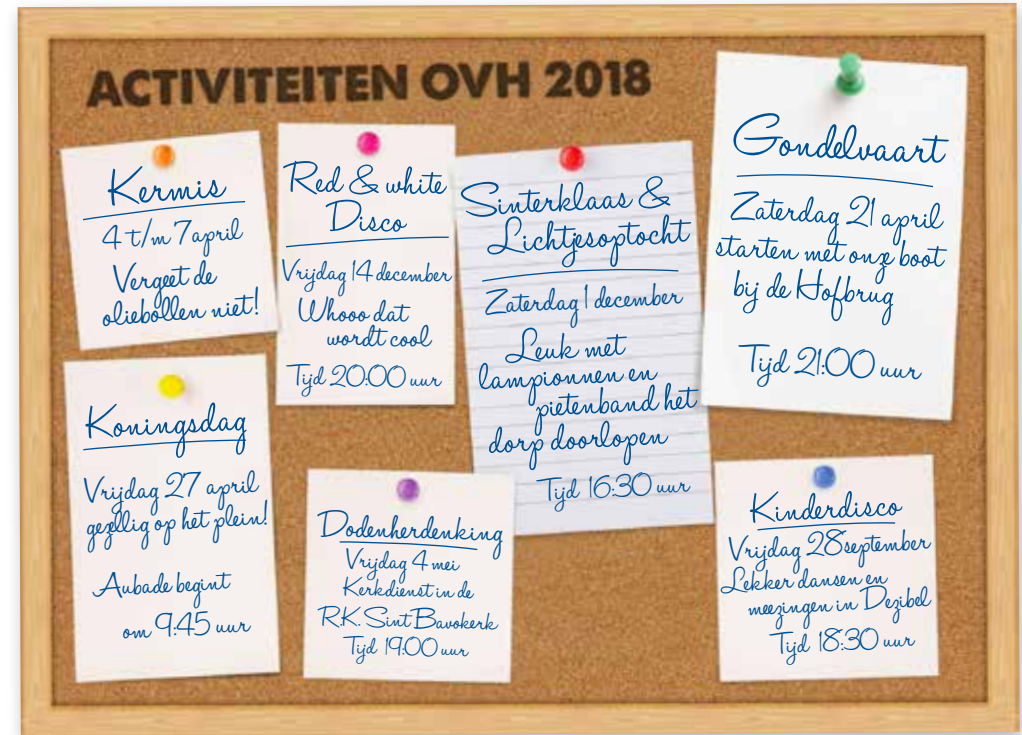 ACTIVITEITEN OVH 2018
Kermis
4 t/m 7 april
Vergeet de
oliebollen niet!
Red & white
Disco
Vrijdag 14 december
Whooo dat
wordt cool
Tijd 20:00 uur
Sinterklaas &
Lichtjesoptocht
Zaterdag 1 december
Leuk met
lampionnen en
pietenband het
dorp doorlopen
Tijd 16:30 uur
Gondelvaart
Zaterdag 21 april
starten met onze boot
bij de Hofbrug
Tijd 21:00 uur
Koningsdag
Vrijdag 27 april
gezellig op het plein!
Aubade begint
om 9:45 uur
Dodenherdenking
Vrijdag 4 mei
Kerkdienst in de
R.K. Sint Bavokerk
Tijd 19:00 uur
Kinderdisco
Vrijdag 28 september
Lekker dansen en
meezingen in Dezibel
Tijd 18:30 uur